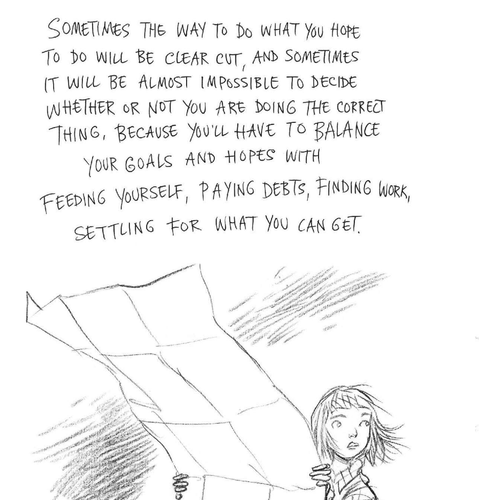 SOMETIMES THE WAY TO DO WHAT YOU HOPE
TO DO WILL BE CLEAR CUT, AND SOMETIMES
IT WILL BE ALMOST IMPOSSIBLE TO DECIDE
WHETHER OR NOT YOU ARE DOING THE CORRECT
THING, BECAUSE YOU'LL HAVE TO BALANCE
YOUR GOALS AND HOPES WITH
FEEDING YOURSELF, PAYING DEBTS, FINDING WORK,
SETTLING FOR WHAT YOU CAN GET.